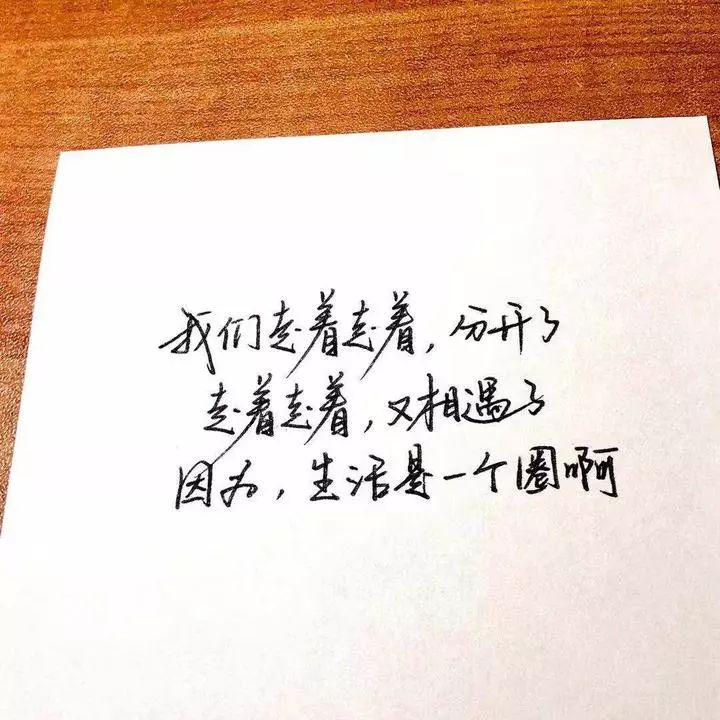 我们走着走着，分开了
走着走着，又相遇了
因为，生活是一个圈啊